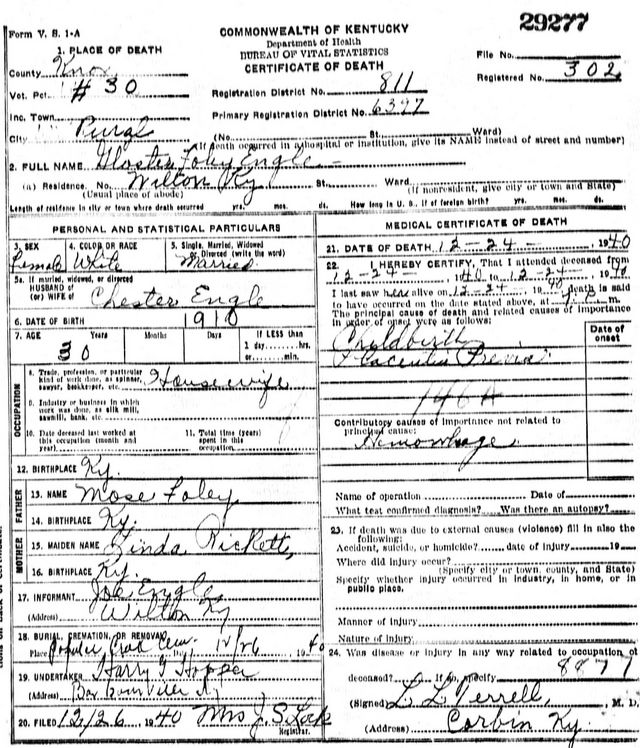 29277
Form V. S. 1-A
COMMONWEALTH OF KENTUCKY
Department of Health
BUREAU OF VITAL STATISTICS
CERTIFICATE OF DEATH
File No.
Registered No. 302
1. PLACE OF DEATH
County Knox
Vot. Pct. #30
Inc. Town
City
Registration District No. 811
Primary Registration District No. 6397
(No. St. Ward)
(If death occurred in a hospital or institution, give its NAME instead of street and number)
2. FULL NAME Foley Engle
(a) Residence. No. Wilton Ky St. Ward
(Usual place of abode) (If nonresident, give city or town and State)
Length of residence in city or town where death occurred yrs. mos. ds. How long in U. S., if of foreign birth? yrs. mos. ds.
PERSONAL AND STATISTICAL PARTICULARS
3. SEX Female
4. COLOR OR RACE White
5. Single, Married, Widowed or Divorced (write the word) Married
5a. If married, widowed, or divorced
HUSBAND of
(or) WIFE of Chester Engle
6. DATE OF BIRTH 1910
7. AGE Years Months Days If LESS than
30 1 day......hrs.
or......min.
OCCUPATION
8. Trade, profession, or particular
kind of work done, as spinner,
sawyer, bookkeeper, etc. Housewife
9. Industry or business in which
work was done, as silk mill,
sawmill, bank, etc.
10. Date deceased last worked at
this occupation (month and
year)
11. Total time (years)
spent in this
occupation
12. BIRTHPLACE Ky.
FATHER
13. NAME Mose Foley
14. BIRTHPLACE Ky.
MOTHER
15. MAIDEN NAME Rickett
16. BIRTHPLACE Ky.
17. INFORMANT Joe Engle
(Address) Wilton Ky
18. BURIAL, CREMATION, OR REMOVAL
Place Cem. 12/26 1940
19. UNDERTAKER Harry Hopper
(Address) Barbourville Ky
20. FILED 12/26 1940 Mrs
Registrar.
MEDICAL CERTIFICATE OF DEATH
21. DATE OF DEATH 12-24- 1940
22. I HEREBY CERTIFY, That I attended deceased from
12-24- 1940 to 12-24- 1940
I last saw her alive on 12-24- 1940 death is said
to have occurred on the date stated above, at m.
The principal cause of death and related causes of importance
in order of onset were as follows:
Date of
onset
Childbirth
Placentia Previa
146A
Contributory causes of importance not related to
principal cause:
Hemorrhage
Name of operation Date of
What test confirmed diagnosis? Was there an autopsy?
23. If death was due to external causes (violence) fill in also the
following:
Accident, suicide, or homicide? date of injury 19
Where did injury occur?
(Specify city or town, county, and State)
Specify whether injury occurred in industry, in home, or in
public place.
Manner of injury
Nature of injury
24. Was disease or injury in any way related to occupation of
deceased? If so, specify 8877
(Signed) L L Terrell, M. D.
(Address) Corbin Ky.